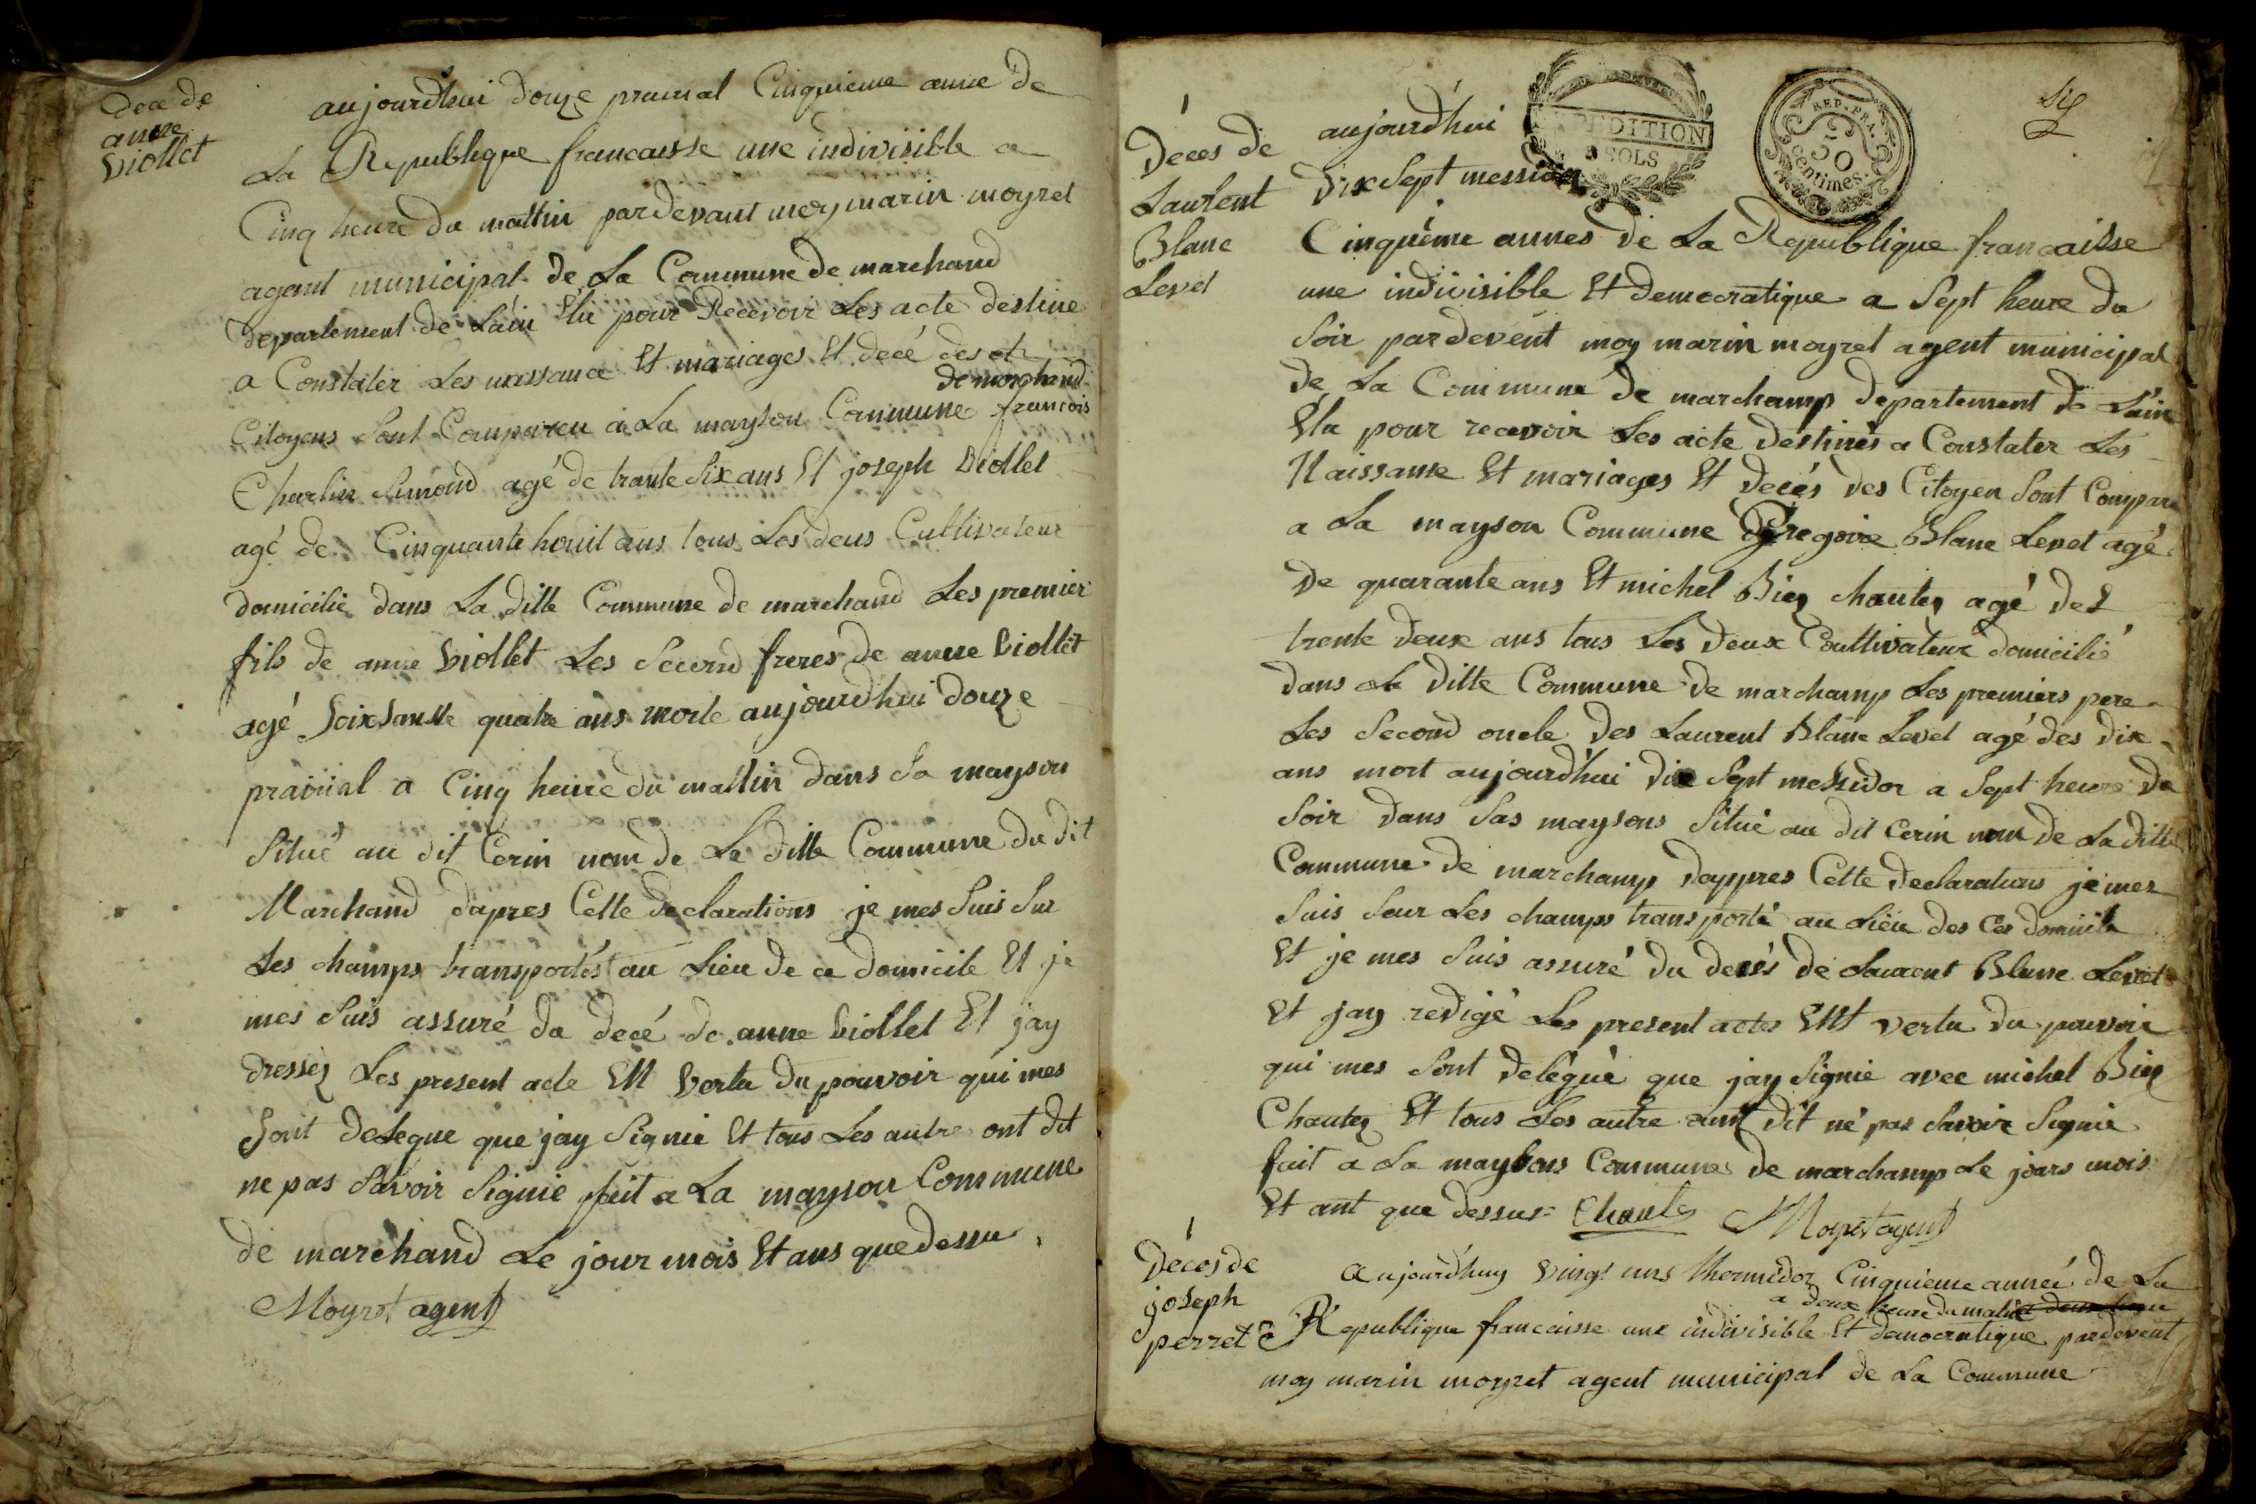 dece de
anne
viollet
aujourd'hui douze prairial Cinquieme anne de
La Republique francaisse une indivisible a
Cinq heure du mattin pardevant moy marin moyret
agent municipal de La Commune de marchand
departement de Lain Elu pour Recevoir Les acte destine
a Constater Les naissance Et mariages Et decé des
Citoyens Sont Comparu a La mayson Commune de marchand francois
Charlin Simond agé de trante Six ans Et joseph viollet
agé de Cinquante houit ans tous Les deus Cultivateur
domicilié dans La ditte Commune de marchand Les premier
fils de anne viollet Les Second freres de anne viollet
agé Soixsante quatre ans morte aujourd'hui douze
prairial a Cinq heure du mattin dans Sa mayson
Situé au dit Cerin nom de Le ditte Commune du dit
Marchand dapres Cette declarations je mes Suis Sur
Les champs transportés au Lieu de ce domicile Et je
mes Suis assuré da decé de anne viollet Et jay
dressez Les present acte EN vertu du pouvoir qui mes
Sont delegue que jay Signié Et tous Les autre ont dit
ne pas Savoir Signié fait a La mayson Commune
de marchand Le jour mois Et ans que dessu
Moyret agent
Décès de
Laurent
Blanc
Levet
aujourd'hui
EXPEDITION
SOLS
REP. FRA.
50
centimes.
Dix Sept messidor
Cinquême annes de La Republique francaisse
une indivisible Et democratique a Sept heure du
Soir pardevent moy marin moyret agent municipal
de La Commune de marchamp departement de Lain
Elu pour recevoir Les acte destinés a Constater Les
Naissanse Et mariages Et decés des Citoyen Sont Comparu
a La mayson Commune Gregoire Blanc Levet agé
de quarante ans Et michel Biez chantez agé des
trente deux ans tous Les deux Coultivateur domicilié
dans La ditte Commune de marchamp Les premiers pere
Les Second oncle des Laurent Blanc Levet agé des dix
ans mort aujourd'hui dix Sept messidor a Sept heure du
Soir dans Sas maysons Situé au dit Cerin nom de La ditte
Commune de marchamp dappres Cette declarations je mes
Suis Seur Les champs transporté au Lieu des Ces domicile
Et je mes Suis assuré du decés de Laurent Blanc Levet
Et jay redigé Les present actes ENt vertu du pouvoir
qui mes Sont delégué que jay Signié avec michel Biez
Chantez Et tous Les autre ont dit né pas Savoir Signié
fait a La maysons Commune de marchamp Le jours mois
Et ant que dessus Chantez Moyret agent
Décès de
joseph
perret
Aujourd'huy vingt uns thermidor Cinquieme anneé de La
a deux heure du matin
Republique francaisse une indivisible Et democratique pardevent
moy marin moyret agent municipal de La Commune